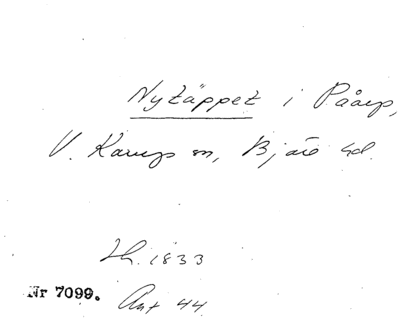 Nytäppet i Påarp,
V. Karup sn, Bjäre hd.
Lh. 1833
Nr 7099.
Ant 44